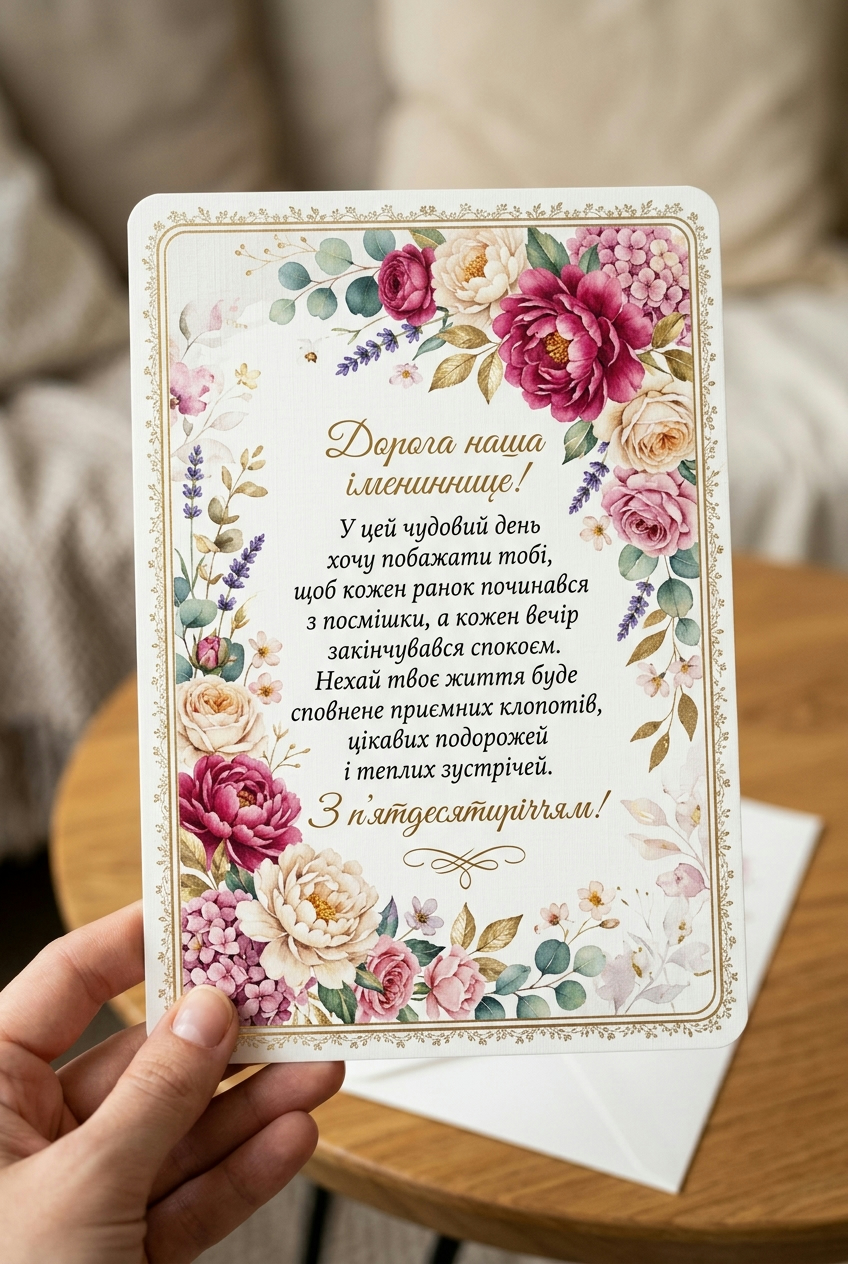 Дорога наша
іменинниця!
У цей чудовий день
хочу побажати тобі,
щоб кожен ранок починався
з посмішки, а кожен вечір
закінчувався спокоєм.
Нехай твоє життя буде
сповнене приємних клопотів,
цікавих подорожей
і теплих зустрічей.
З п'ятдесятиріччям!